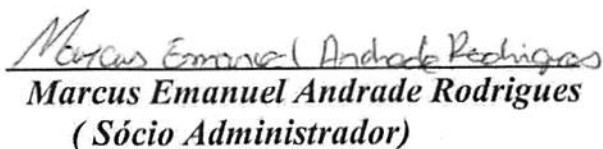 Marcus Emanuel Andrade Rodrigues
Marcus Emanuel Andrade Rodrigues
( Sócio Administrador)